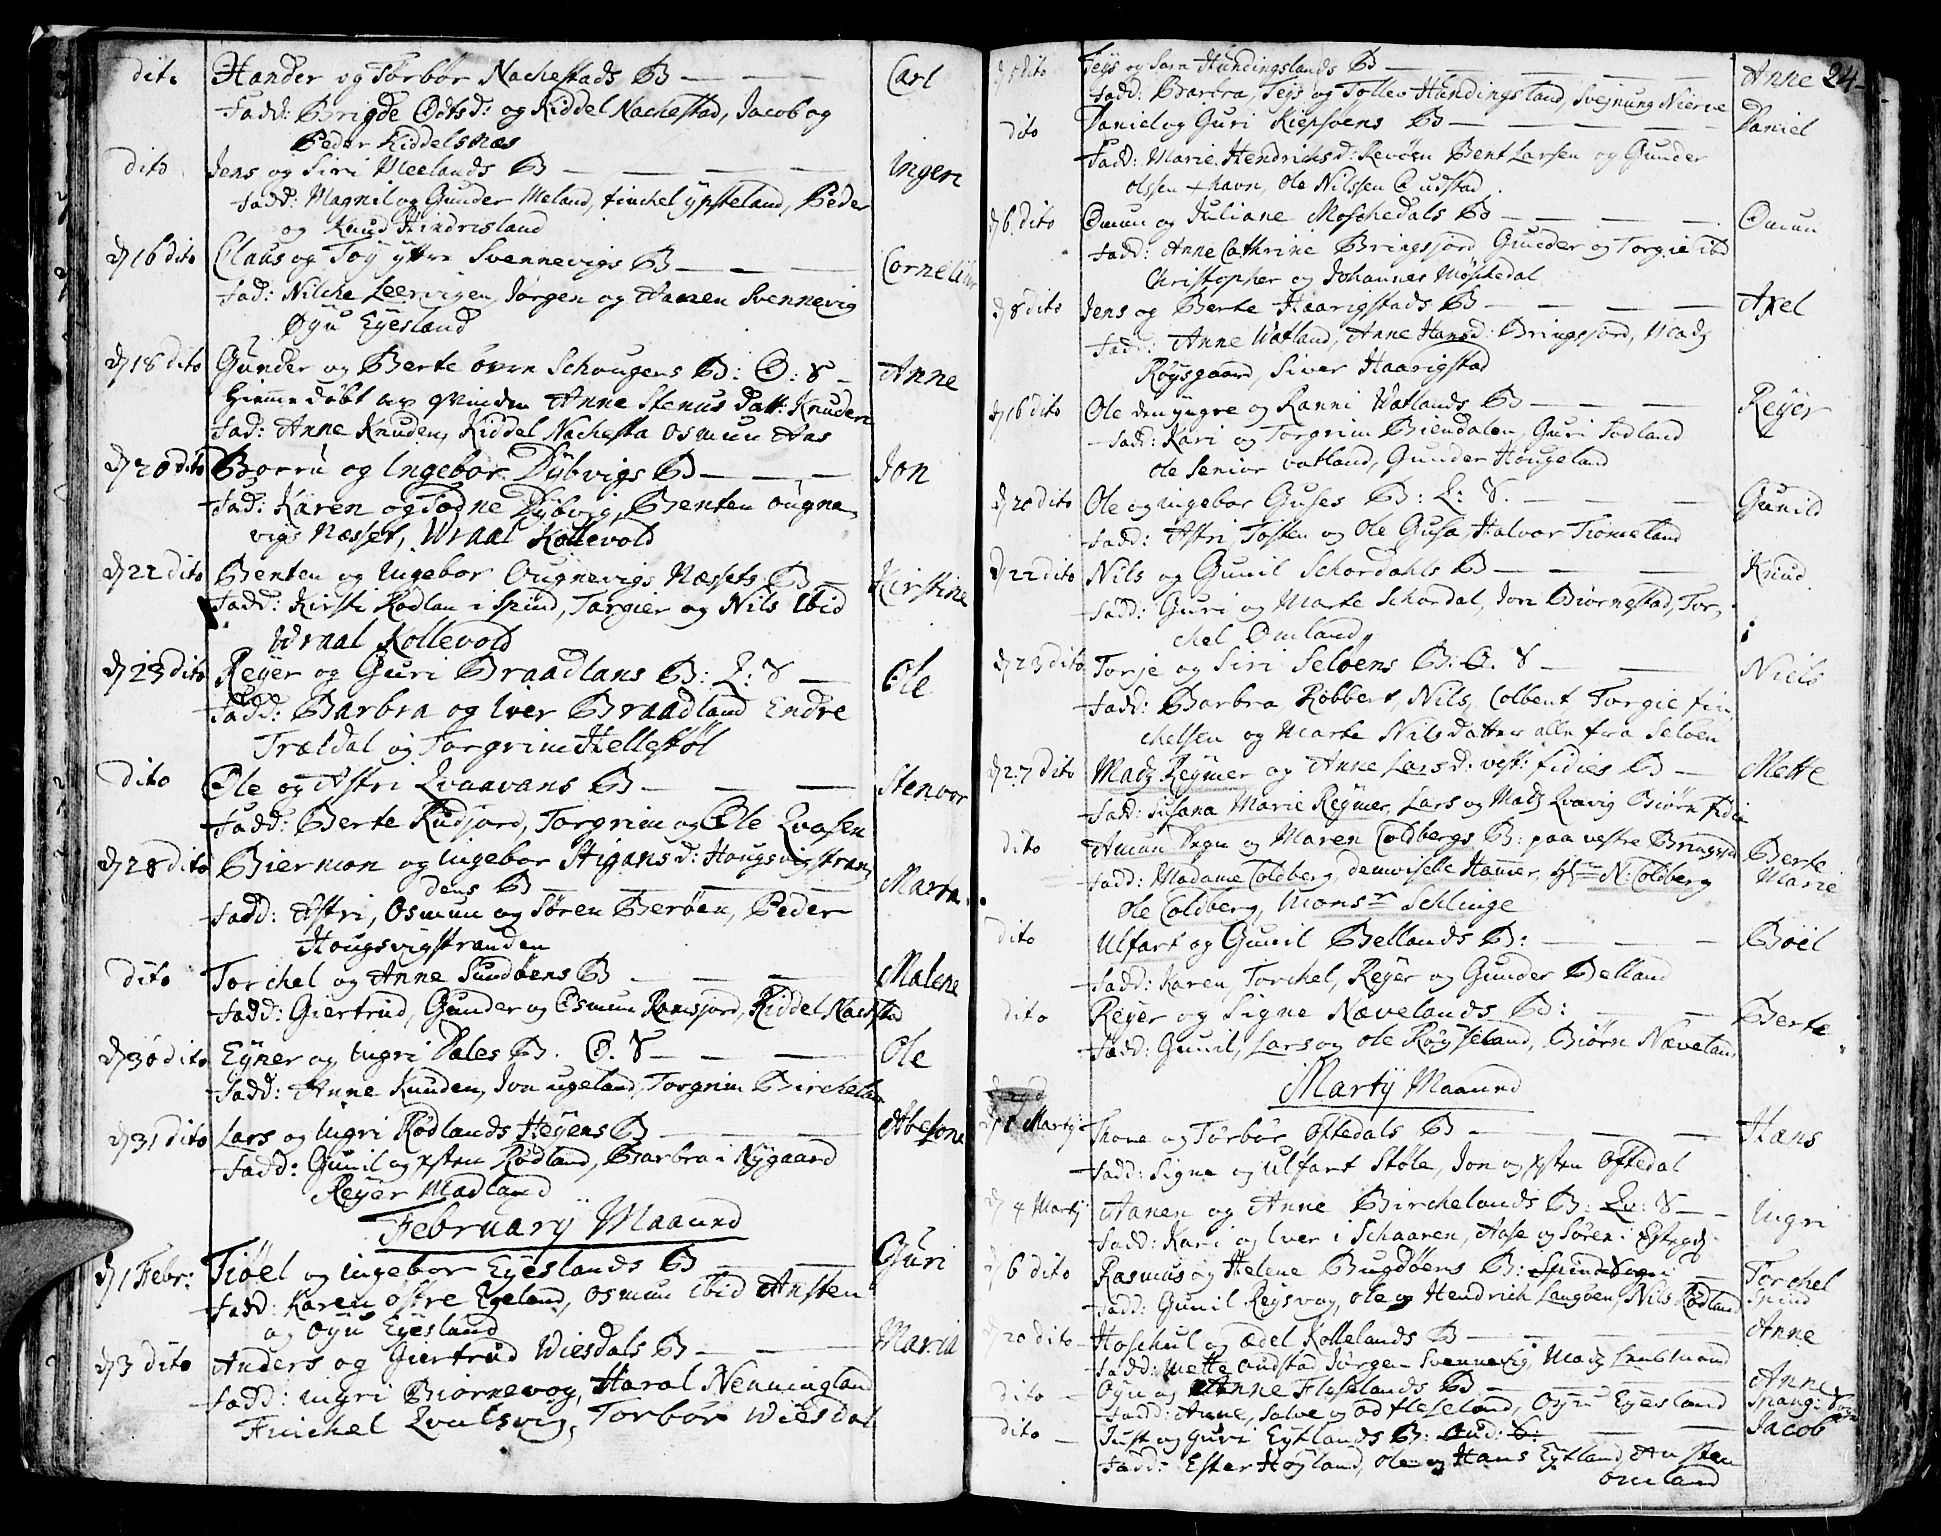 dito Hander og Torbor Nachestads B — — — Carl
Fadd: Brigde Odtsd: og Kiddel Nachestad, Jacob og
Peder Kiddelsnæs
dito Jens og Siri Meelands B — — — — Ingeri
Fadd: Magnil og Gunder Meland, finchel ypsteland, Peder
og Knud Hindrisland
d 16 dito Claus og Toy yttre Svennevigs B — — — Cornelius
Fad: Nilche Leervigen, Jørgen og Aanen Svennevig
Oyu Eyesland
d 18 dito Gunder og Berte øvre Schougens B: O: S — Anne
hiemmedøbt af qvinden Anne Stenus datt: Knuden
Fad: Anne Knuden, Kiddel Nachesta Osmun Aas
d 20 dito Borru og Ingebor Dybvigs B — — — Jon
Fad: Karen og Todne Dybvig, Benten ougne
vigs Næsset, Wraal Kollevold
d 22 dito Benten og Ingebor Ougnevigs Næssets B — Kirstine
Fadd: Kirsti Rødlan i Spind, Targier og Nils ibid
Wraal Kollevold
d 23 dito Reyer og Guri Braadlans B: Q: S — Ole
Fadd: Barbra og Iver Braadland Endre
Trældal og Torgrim Hellestøl
dito Ole og Astri Qvaavans B — — — Stenvor
Fadd: Berte Rudjord, Torgrim og Ole Qvasen
d 28 dito Biermon og Ingebor Stigansd: Hougsvigstran
dens B — — — — Marta
Fadd: Astri, Osmun og Søren Berøen, Peder
Hougsvigstranden
dito Torchel og Anne Sundøens B — — — Malene
Fadd: Giertrud, Gunder og Osmun Ramsjord, Kiddel Nachstad
d 30 dito Eyner og Ingri Dales B. O. S — — — Ole
Fadd: Anne Knuden, Jon ugeland, Torgrim Birchelan
d 31 dito Lars og Ingri Rødlands Heyens B — — — Abelone
Fadd: Gunil og xsten Rødland, Barbra i Nygaard
Reyer Madland
Februarij Maaned
d 1 Febr: Tiøel og Ingebor Eyeslands B — — — Guri
Fadd: Karen østre Egeland, Osmun ibid Ansten
og Oyu Eyesland
d 3 dito Anders og Giertrud Wiesdals B — — — Maria
Fadd: Ingri Biørnevog, Haral Nenningland
Finchel Qvalsvig, Torbør Wiesdal
24
d 5 dito Tejs og Sara Hundingslands B — — — — Anne
Fadd: Barbra, Tejs og Tollev Hundingsland, Svejnung Nierve
dito Daniel og Guri Kiepsøens B — — — — Daniel
Fadd: Marie Hendrichsd: Revøen Bent Larsen og Gunder
Olssen havn, Ole Nilssen udstad
d 6 dito Omun og Juliane Moschedals B — — — Omun
Fadd: Anne Cathrine Bringsjord Gunder og Torgie ibd
Christopher og Johannes Møskedal
d 8 dito Jens og Berte Haarigstads B — — — Axel
Fadd: Anne Watland, Anne Hansd: Bringsjord, Madz
Røysgaard, Siver Haarigstad
d 16 dito Ole den yngre og Ranni Watlands B — — — Reyer
Fadd: Kari og Torgrim Biendalen, Guri Fodland
ole senior vatland, Gunder Hougeland
d 20 dito Ole og Ingebor Guses B: Q: S. — — — Gunild
Fadd: Astri, Tosten og Ole Gusa, Halvor Tromeland
d 22 dito Nils og Gunil Schordahls B — — — Knud
Fadd: Guri og Marte Schordal, Jon Biørnestad, Tor
chel Omland
d 23 dito Torje og Siri Seløens B: O. S — — Niels
Fadd: Barbra Robbert, Nils, Colbent Torgie fin
chelsen og Marte Nilsdatter alle fra Seløen
d 27 dito Madz Reymer og Anne Larsd: vest: fidies B — Mette
Fadd: Susana Marie Reymer, Lars og Madz Qvavig Biørn Fidie
dito Amun Degn og Maren Coldbergs B: paa vestre Bringsjd Berte Marie
Fadd: Madame Coldberg, demoiselle Hamer, N: Coldberg
Ole Coldberg, Monsr Schlinge
dito Ulfart og Gunil Bellands B: — — — Boel
Fadd: Karen, Torchel, Reyer og Gunder Belland
dito Reyer og Signe Nævelands B: — — Berte
Fadd: Gunil, Lars og ole Røysseland, Biørn Næveland
Martij Maaned
d 1 Martij Thore og Torbør Oftedals B — — — — Hans
Fadd: Signe og Ulfart Støle, Jon og xsten Oftedal
d 4 Martij Aanen og Anne Birchelands B: Qv: S — — Ingri
Fadd: Kari og Iver i Schaaren, Aase og Søren i
d 6 dito Rasmus og Helene Bugdøens B: — Torchel Spind
Fadd: Gunil Reysvog, Ole og Hendrich Langøen, Nils Rødland
d 20 dito Hoschul og Ædel Kollelands B — — — Anne
Fadd: Mette Oudstad Jørgen Svennevig, Madz
dito Oyn og Anne Fleselands B — — — Anne
Fadd: Anne, Salve og Od Fleseland, Oyu Eyesland
dito Just og Guri Eytlands B: — — Jacob
Fadd: Ester Høyland, Ole og Hans Eytland, Ansten
Omland